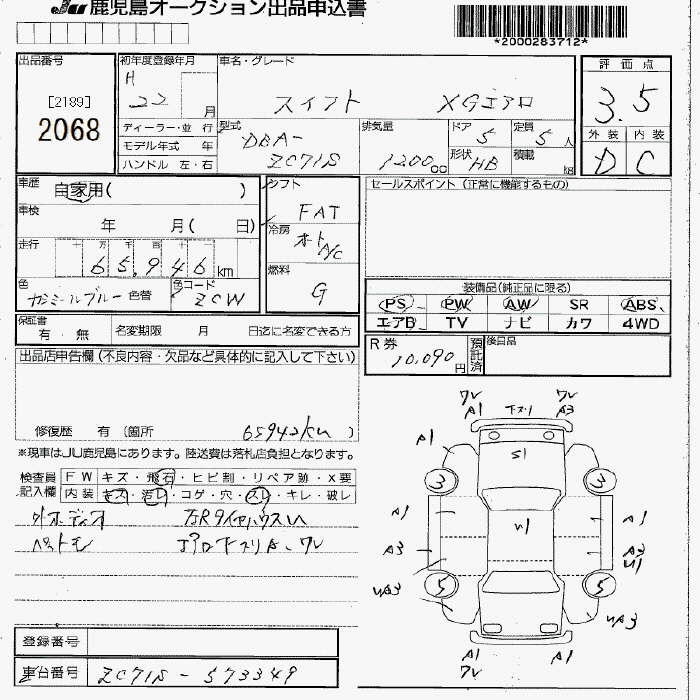 JU 鹿児島オークション出品申込書
*2000283712*
出品番号
[2189]
2068
初年度登録年月
H
22 月
車名・グレード
スイフト XGエアロ
評価点
3.5
外装 内装
D C
ディーラー・並行
モデル年式 年
ハンドル 左・右
型式
DBA-
ZC71S
排気量
1200 cc
ドア 5
定員 5 人
形状 HB
積載 kg
車歴 自家用( )
車検
年 月( 日)
走行 十 万 千 百 十 一
65,946 km
色
カシミールブルー 色替
色コード
ZCW
シフト
FAT
冷房
オート
A/C
燃料
G
セールスポイント (正常に機能するもの)
装備品(純正品に限る)
PS PW AW SR ABS
エアB TV ナビ カワ 4WD
保証書
有・無
名変期限 月 日迄に名変できる方
R券
10,090円
預託済
後日品
出品店申告欄(不良内容・欠品など具体的に記入して下さい)
修復歴 有 (箇所 )
※現車はJU鹿児島にあります。陸送費は落札店負担となります。
検査員
記入欄
FW キズ・飛石・ヒビ割・リペア跡・X要
内装 キズ・汚レ・コゲ・穴・スレ・キレ・破レ
登録番号
車台番号 ZC71S-573349
ワレ ワレ
A1 下スリ A3
A1
S1
3 3
A1 U1 A1
A3 A3
U1
UA3 5 5 UA3
A1 A1
ワレ